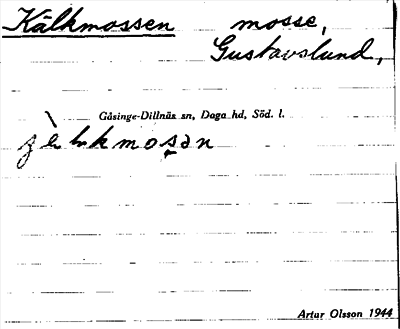 Kälkmossen mosse,
Gustavslund,
Gåsinge-Dillnäs sn, Daga hd, Söd. l.
Artur Olsson 1944